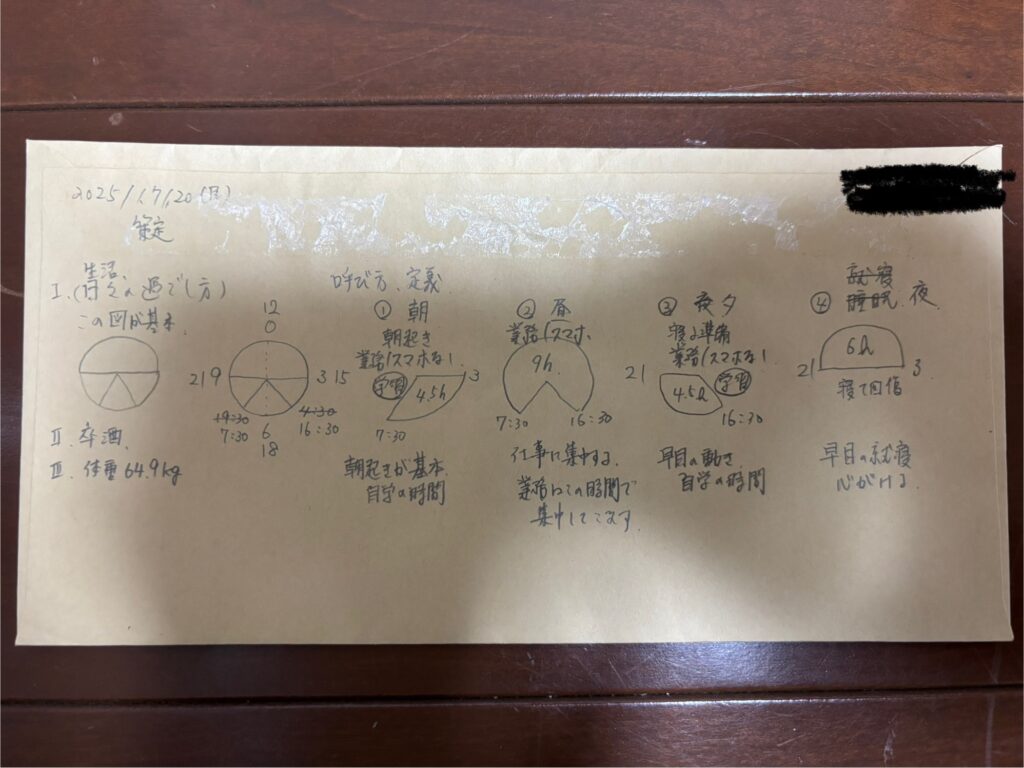 2025/1/20(月)
策定
生活、
I. (日々の過ごし方)
この図が基本、
12
0
21 9
3 15
19:30
7:30
6
18
4:30
16:30
II. 卒酒、
III. 体重 64.9kg
呼び方、定義
① 朝
朝起き
業務/スマホなし
学習
4.5h
3
7:30
朝起きが基本、
自学の時間
② 昼
業務/スマホ、
9h
7:30
16:30
仕事に集中する、
業務はこの時間で
集中してこなす
③ 夜夕
寝る準備
業務/スマホなし
21
4.5h
学習
16:30
早目の動き、
自学の時間
就寝
④ 睡眠、夜
6h
21
3
寝て回復
早目の就寝
心がける